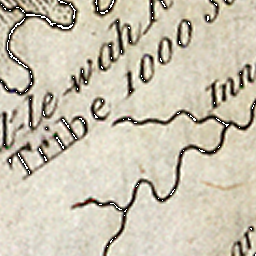 -le-wah
Tribe 1000
Inn
ar